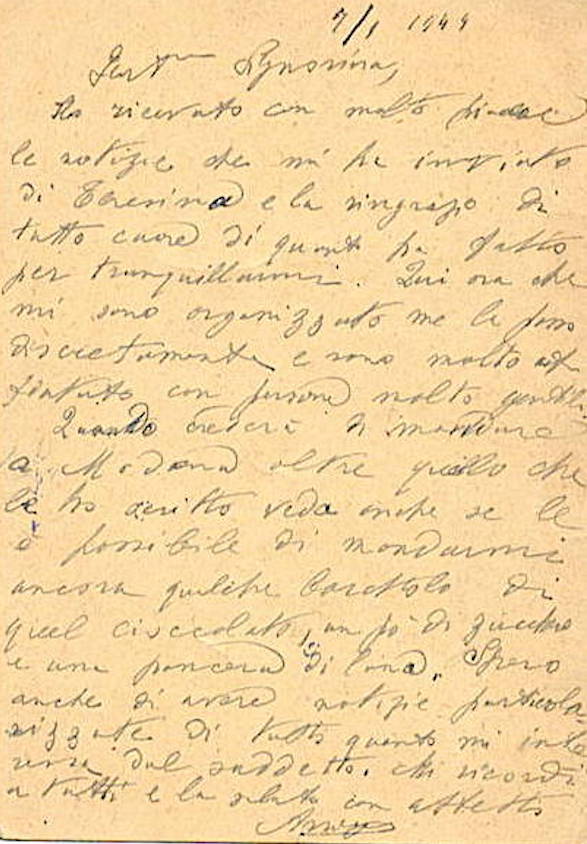 7/1 1944
Gent.ma Signorina,
Ho ricevuto con molto piacere
le notizie che mi ha inviato
di Teresina e la ringrazio di
tutto cuore di quanto ha fatto
per tranquillarmi. Qui ora che
mi sono organizzato me la passo
discretamente e sono molto
con persone molto gentili
Quando crederà di mandare
a Modena oltre quello che
le ho scritto veda anche se le
è possibile di mandarmi
ancora qualche barattolo di
quel cioccolato, un pò di zucchero
e una pancera di lana. Spero
anche di avere notizie particola
rizzate di tutto quanto mi inte
ressa dal suddetto. Mi ricordi
a tutti e la saluto con affetto